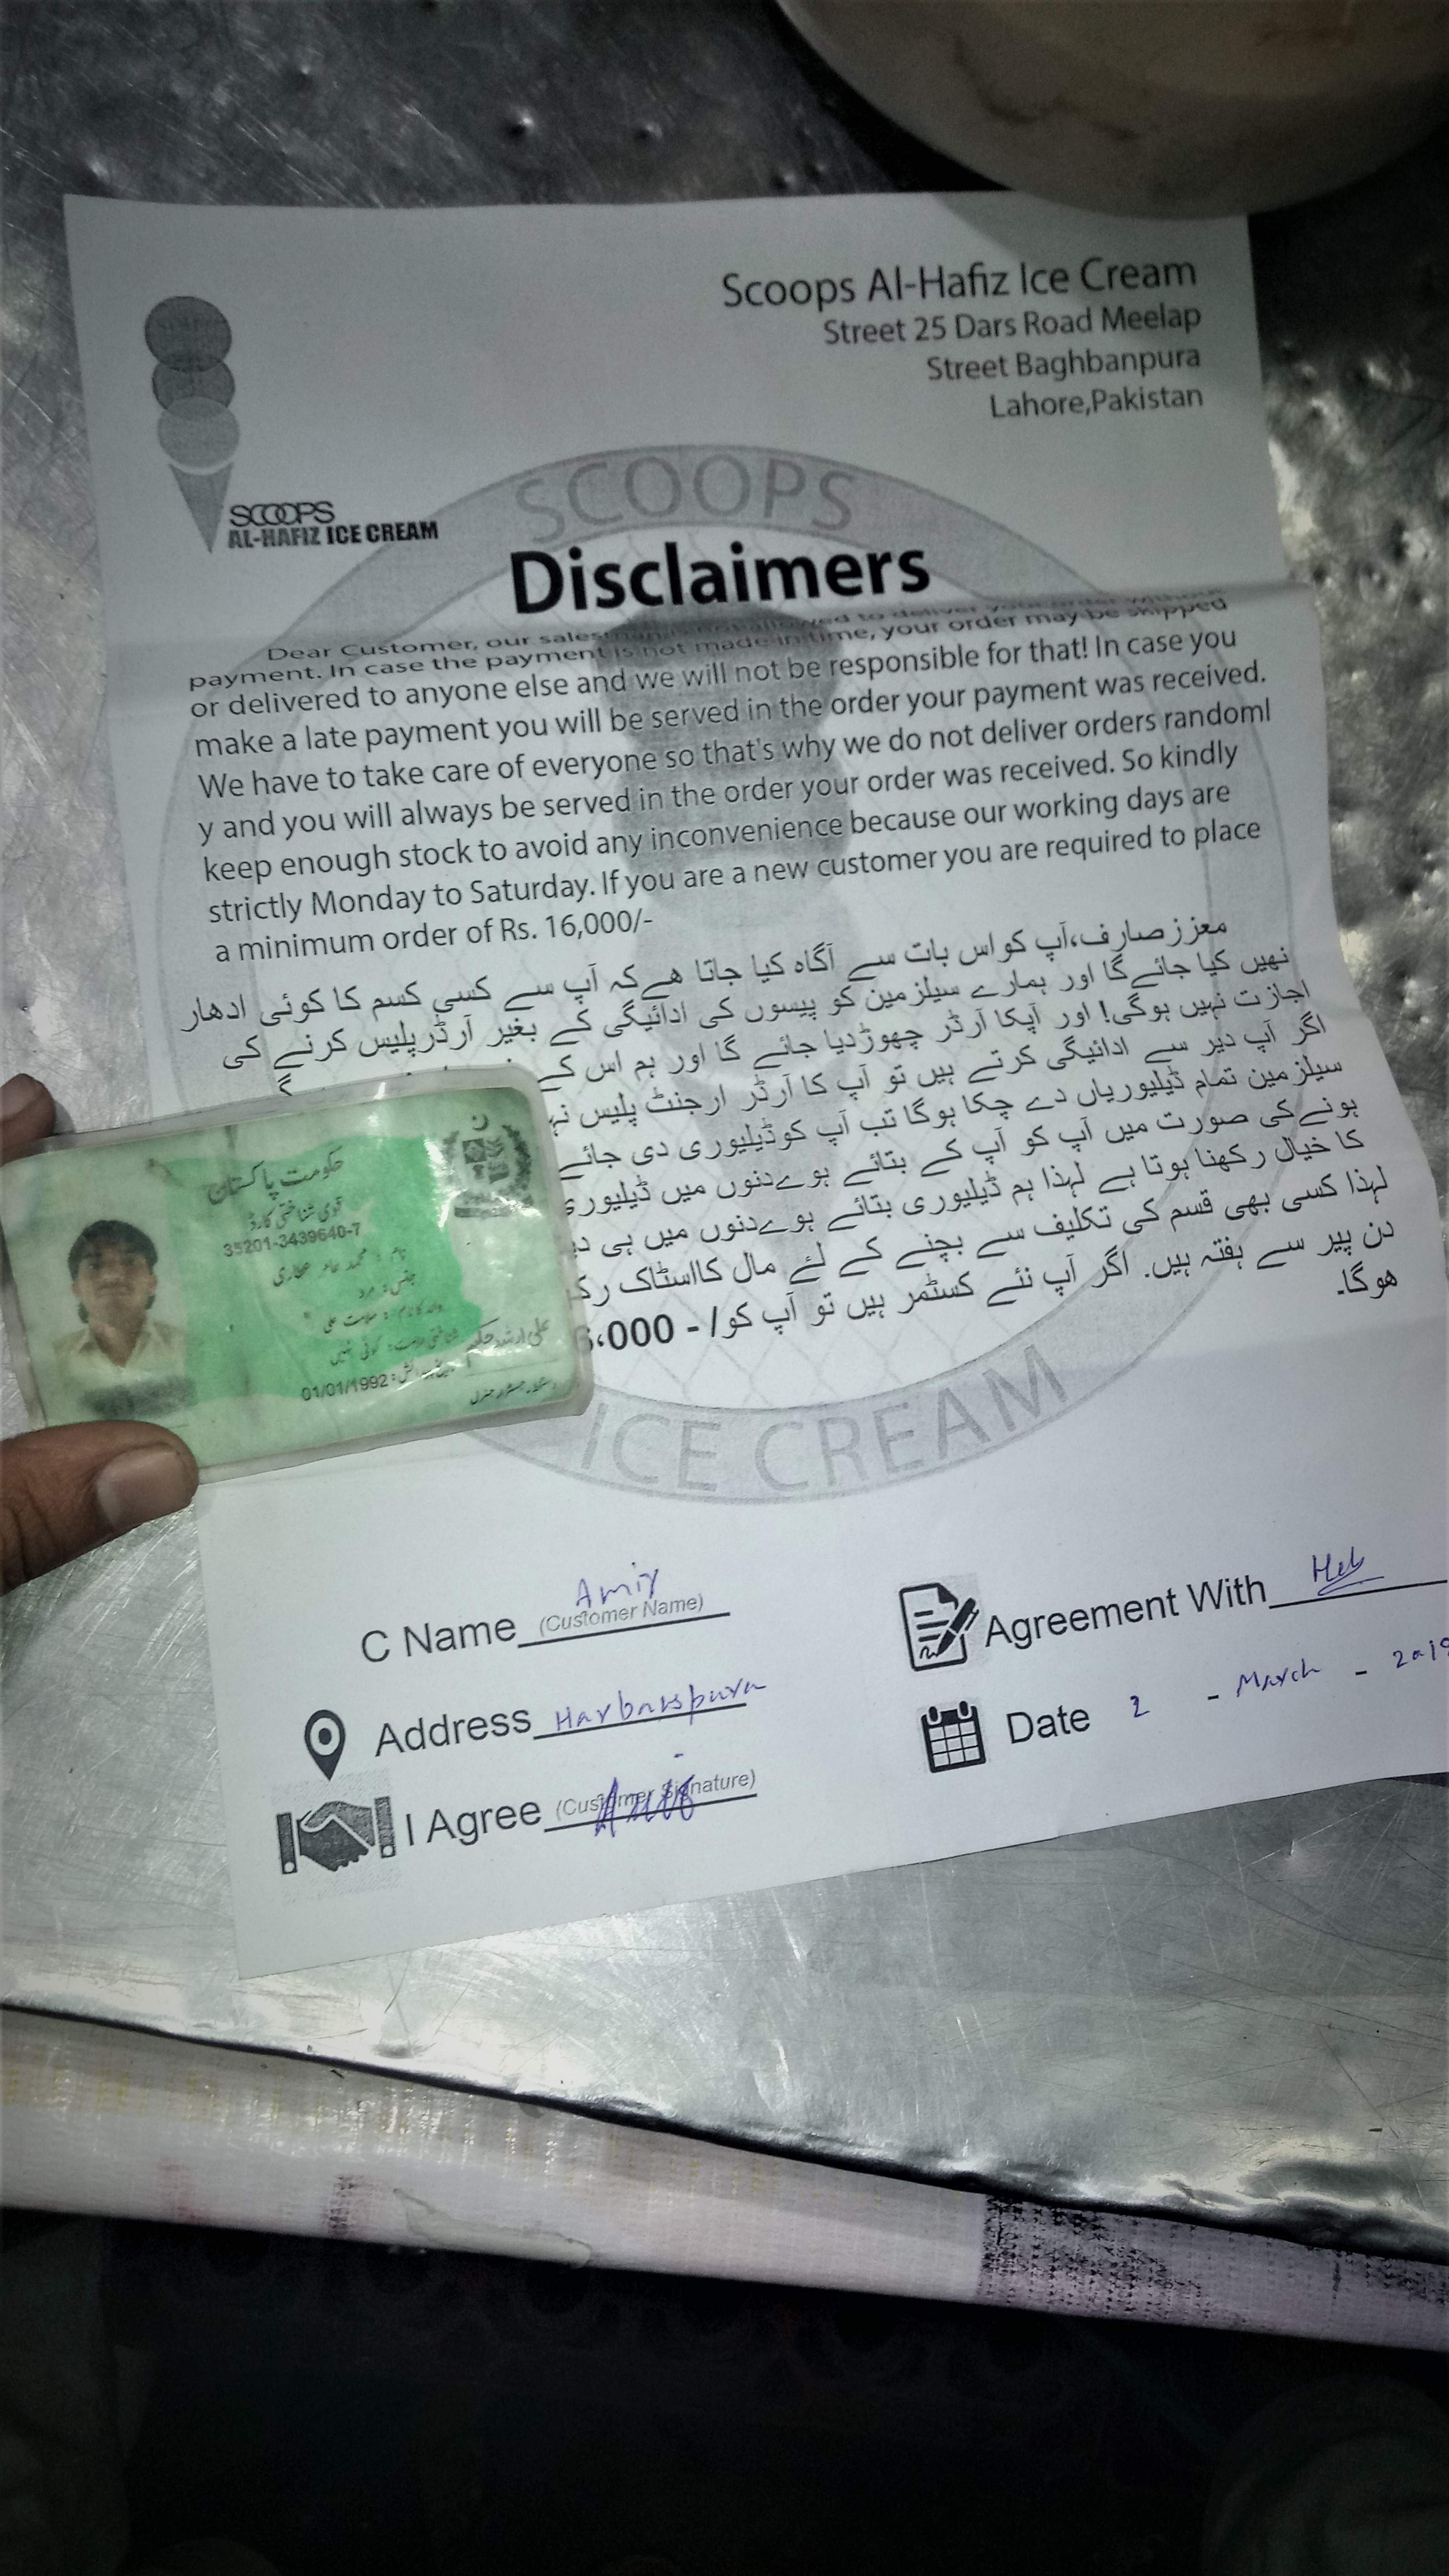 Scoops Al-Hafiz Ice Cream
Street 25 Dars Road Meelap
Street Baghbanpura
Lahore,Pakistan
SCOOPS
AL-HAFIZ ICE CREAM
SCOOPS
Disclaimers
Dear Customer, our salesman is not allowed to deliver your order without
payment. In case the payment is not made in time, your order may be skipped
or delivered to anyone else and we will not be responsible for that! In case you
make a late payment you will be served in the order your payment was received.
We have to take care of everyone so that's why we do not deliver orders randoml
y and you will always be served in the order your order was received. So kindly
keep enough stock to avoid any inconvenience because our working days are
strictly Monday to Saturday. If you are a new customer you are required to place
a minimum order of Rs. 16,000/-
معزز صارف،آپ کو اس بات سے آگاہ کیا جاتا ھےکہ آپ سے کسی کسم کا کوئی ادھار
نھیں کیا جائےگا اور ہمارے سیلزمین کو پیسوں کی ادائیگی کے بغیر آرڈرپلیس کرنے کی
اجازت نہیں ہوگی! اور آپکا آرڈر چھوڑدیا جائے گا اور ہم اس کے
اگر آپ دیر سے ادائیگی کرتے ہیں تو آپ کا آرڈر ارجنٹ پلیس
سیلزمین تمام ڈیلیوریاں دے چکا ہوگا تب آپ کوڈیلیوری دی جائے
ہونےکی صورت میں آپ کو آپ کے بتائے ہوےدنوں میں ڈیلیوری
کا خیال رکھنا ہوتا ہے لہذا ہم ڈیلیوری بتائے ہوےدنوں میں ہی
لہذا کسی بھی قسم کی تکلیف سے بچنے کے لئے مال کااسٹاک
دن پیر سے ہفتہ ہیں. اگر آپ نئے کسٹمر ہیں تو آپ کو/ - 6،000
ھوگا.
حکومت پاکستان
قومی شناختی کارڈ
35201-3439640-7
نام : محمد عامر عطاری
جنس : مرد
والد کا نام : سلامت علی
شناختی علامت : کوئی نہیں
تاریخ پیدائش : 01/01/1992
دستخط رجسٹرار جنرل
ICE CREAM
C Name Amir
(Customer Name)
Agreement With
Address Harbanspura
Date 2 - March - 2019
I Agree (Customer Signature)